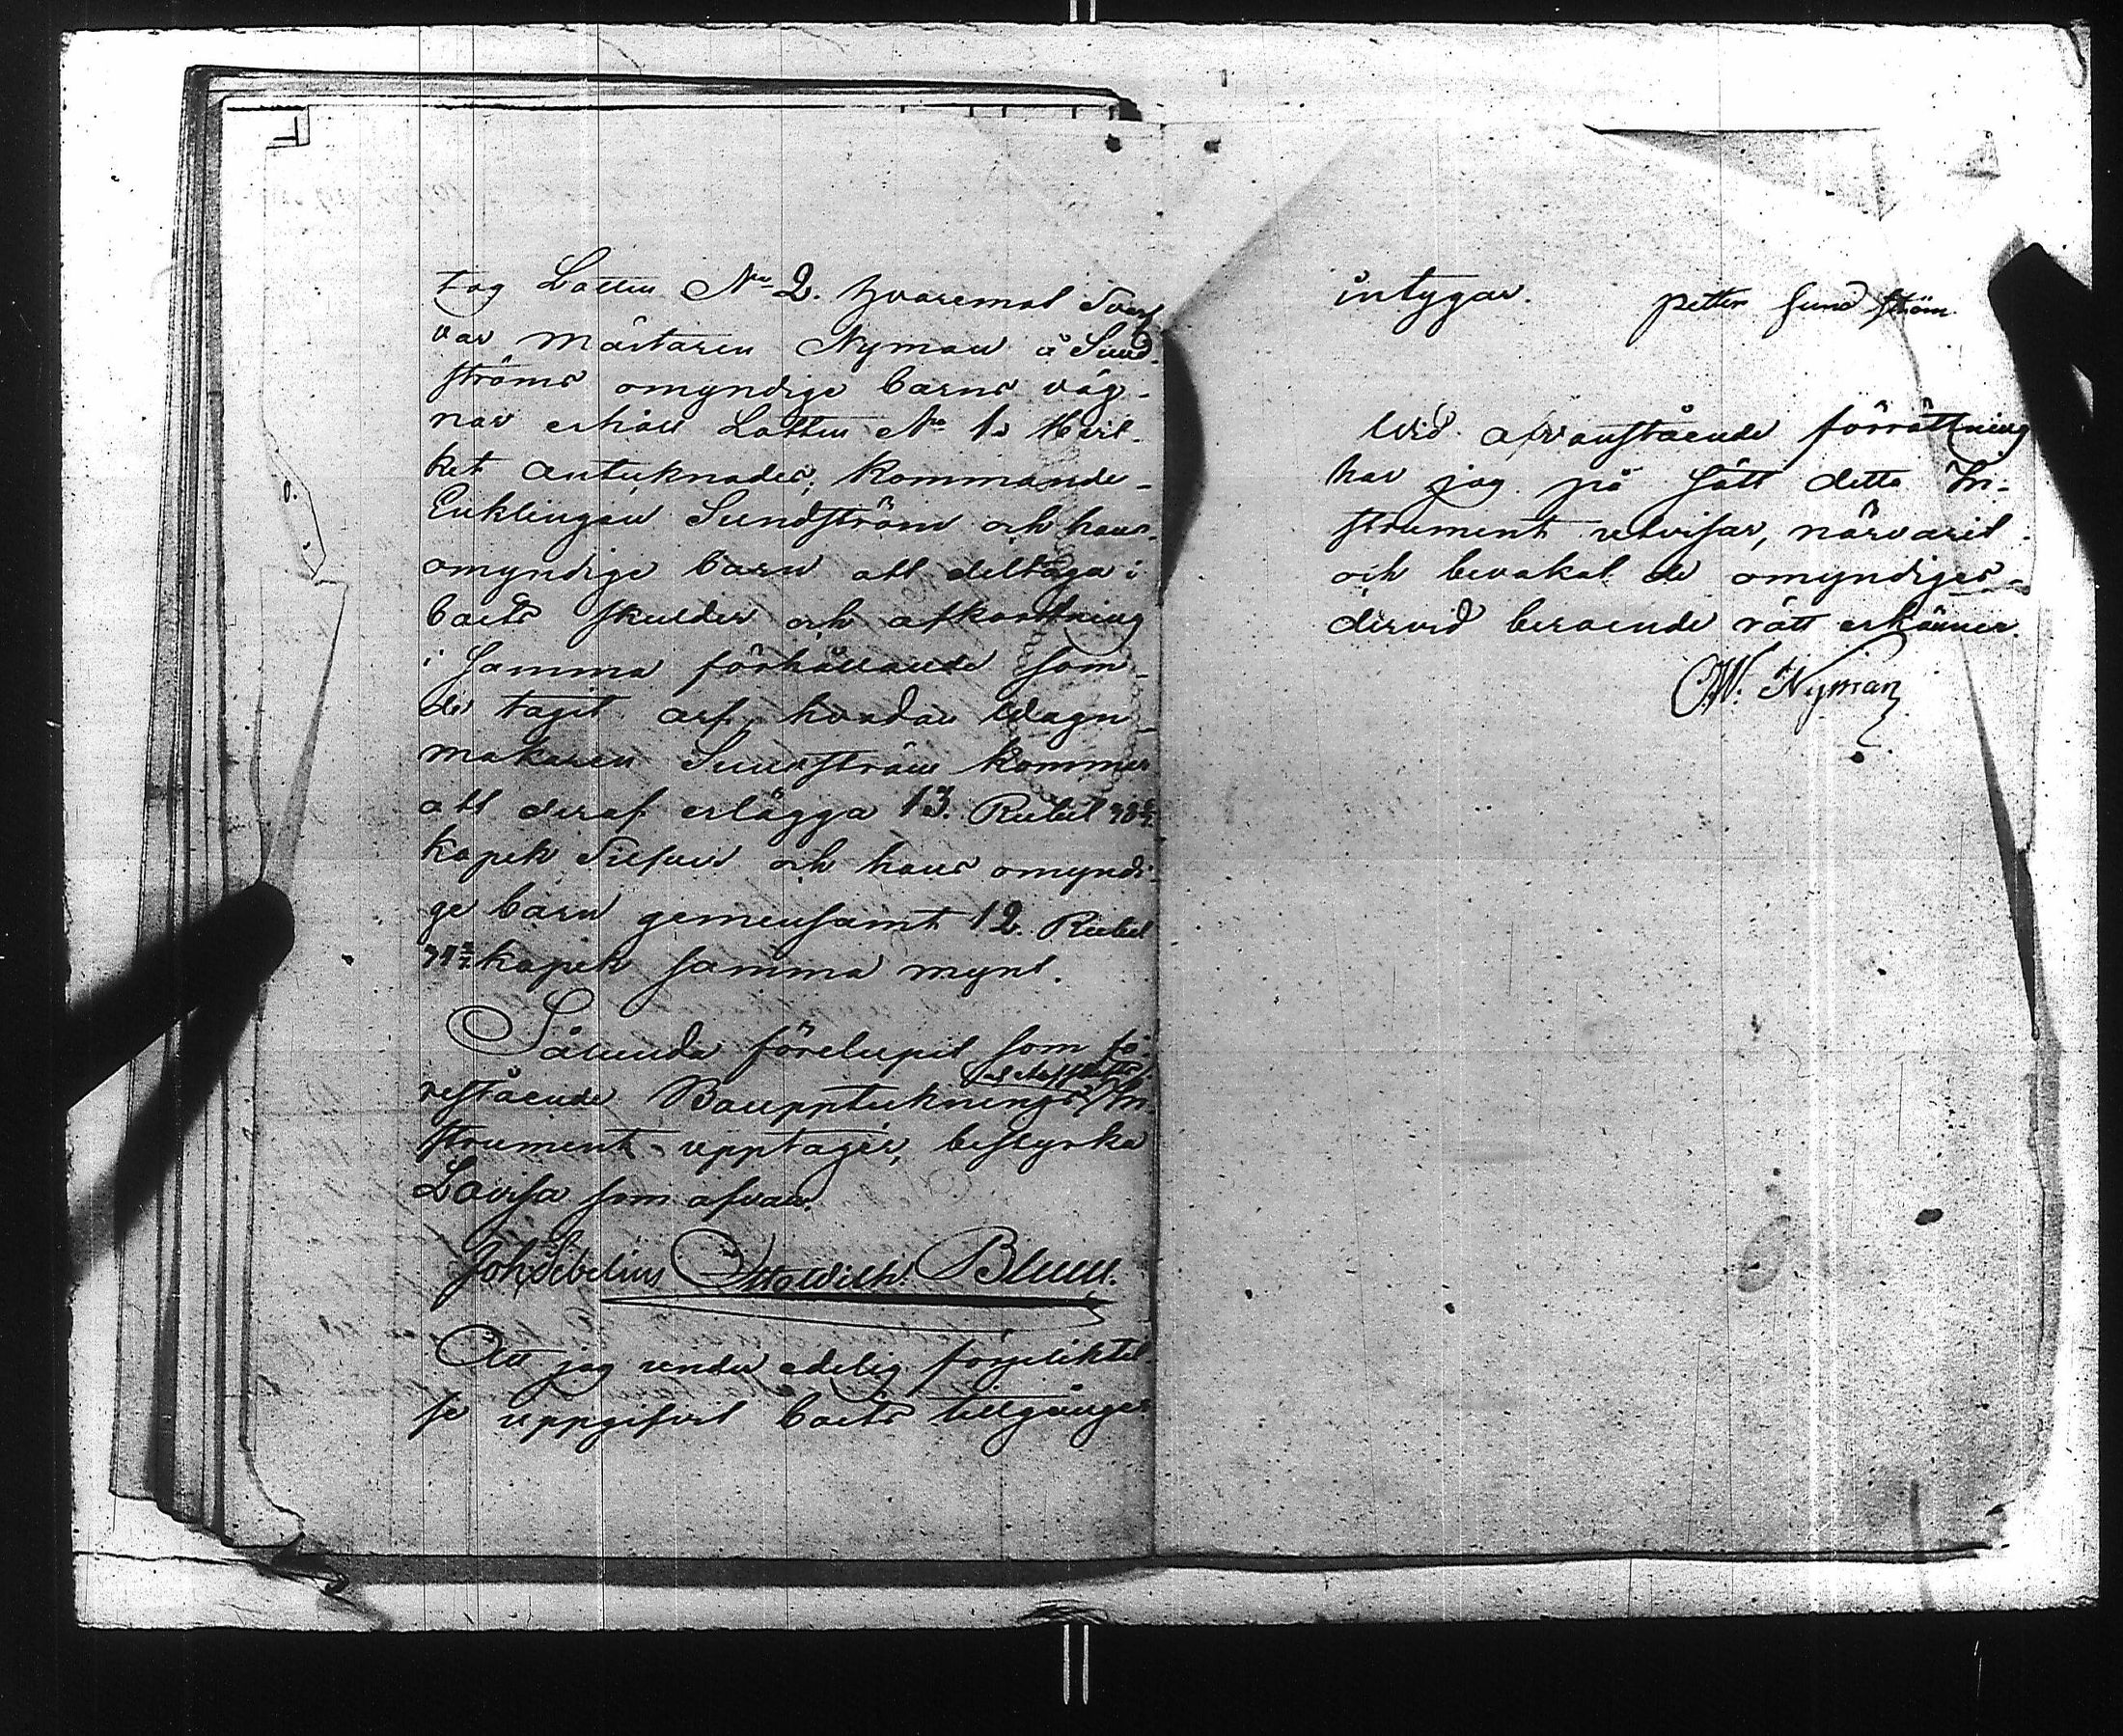 tog Lotten No 2. hvaremot Svarf
var mästaren Nyman å Sund-
ströms omyndige barns väg-
nar erhöll Lotten No 1. Hvil-
ket antecknades; kommande
Enklingen Sundström och hans
omyndige barn att deltaga i
boets skulder och afkortning
i samma förhållande som
de taget arf, hvadan Wagn
makaren Sundström kommer
att deraf erlägga 13. Rubel
kopek Silfver och hans omyndi-
ge barn gemensamt 12. Rubel
kopek samma mynt.
Sålunda förelupit som fö-
restående Bouppteknings In-
strument upptager, bestyrka
Lovisa som ofvan.
Joh Sibelius Otto Wilh. Blum.
Att jag under edelig förpliktel-
se uppgifvit boets tillgångar
intygar. petter sund ström
Wid ofvanstående förrättning
har jag på sätt detta In-
strument utvisar, närvarit
och bevakat de omyndiges
dervid beroende rätt erkännes.
O.W. Nyman